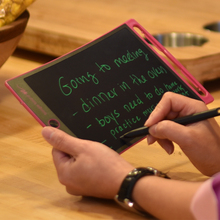 Going to meeting
- dinner in the oven
- boys need to do their
practice